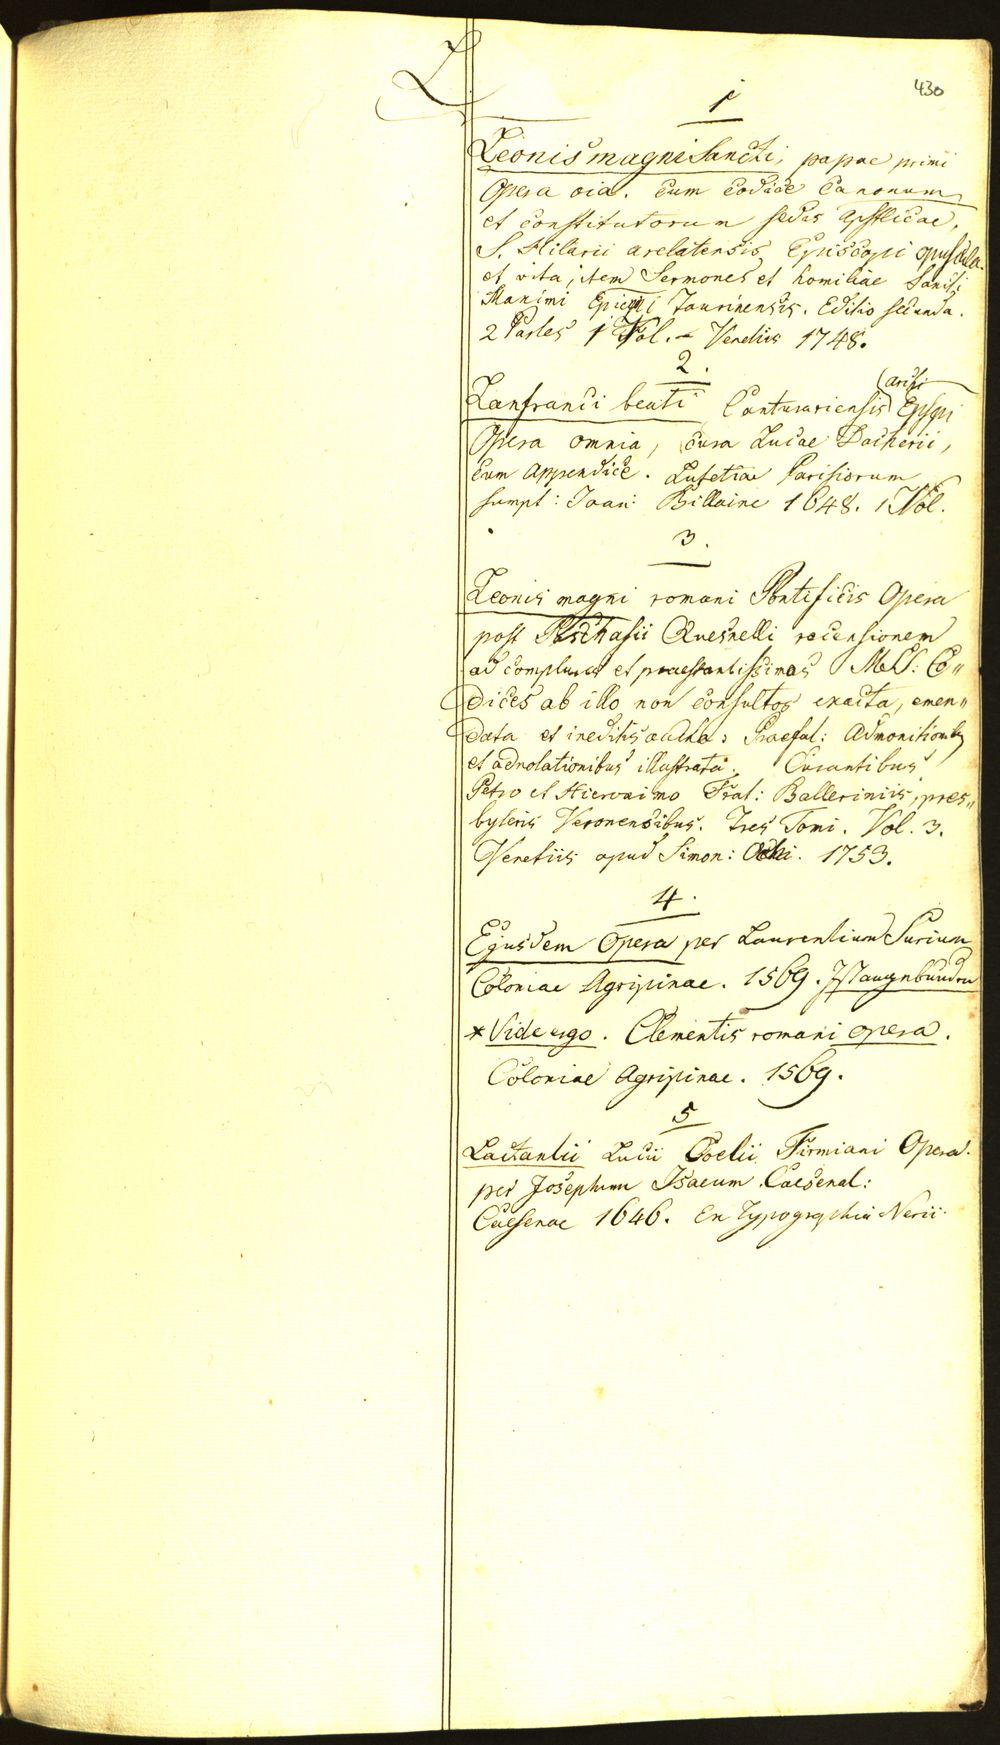 L
430
1
Leonis magni Sancti, papae primi
Opera oia. Cum Codice Canonum
et Constitutorum sedis Apstlicae,
S. Hilarii arelatensis Episcopi opuscula
et vita, item Sermones et homiliae Sancti
Maximi Taurinensis. Editio secunda.
2 Partes 1 Vol. – Venetiis 1748.
2.
Lanfranci beati Cantuariensis (archi Epspi
Opera omnia, cura Lucae Dacherii,
Cum Appendice. Lutetiae Parisiorum
sumpt: Joan: Billaine 1648. 1 Vol.
3.
Leonis magni romani Pontificis Opera
post Paschasii Quesnelli recensionem
ad complures et praestantissimos MSS: Co„
dices ab illo non consultos exacta, emen„
data et ineditis aucta: Praefat: Admonitionibs
et adnotationibus illustrata. Curantibus
Petro et Hieronimo Frat: Balleriniis, pres„
byteris Veronensibus. Tres Tomi. Vol. 3.
Venetiis apud Simon: Ochi. 1753.
4.
Ejusdem Opera per Laurentium Surium
Coloniae Agripinae. 1569.
* Vide ergo. Clementis romani opera.
Coloniae Agripinae. 1569.
5
Lactantii Lucii Coelii Firmiani Opera.
per Josephum Isaeum Caesenat:
Caesenae 1646. Ex Typographia Nerii.